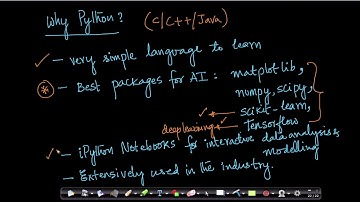 Why Python? (C/C++/Java)
- very simple language to learn
- Best packages for AI: matplotlib,
numpy, scipy,
scikit-learn,
deep learning Tensorflow
- iPython Notebooks for interactive data analysis &
modelling
- Extensively used in the industry.